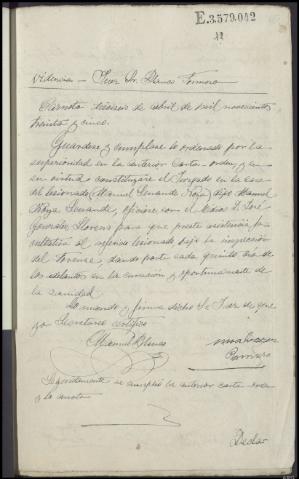 E.3.579.042
Providencia - Juez Sr. Blanco
Carnota dieciseis de abril de mil novecientos
treinta y cinco.
Guardese y cumplase lo ordenado por la
superioridad en la anterior carta-orden, y en
su virtud constitúyase el Juzgado en la casa
del lesionado Manuel
oficiese con el Médico D. José
González Llorens para que preste asistencia fa-
cultativa al referido lesionado bajo la inspección
del Forense, dando parte cada quince días de
los adelantos en la curación y oportunamente de
la sanidad.
Lo mandó y firma dicho Sr. Juez de que
yo Secretario certifico
Manuel Blanco
Seguidamente se cumplió la anterior carta-orden